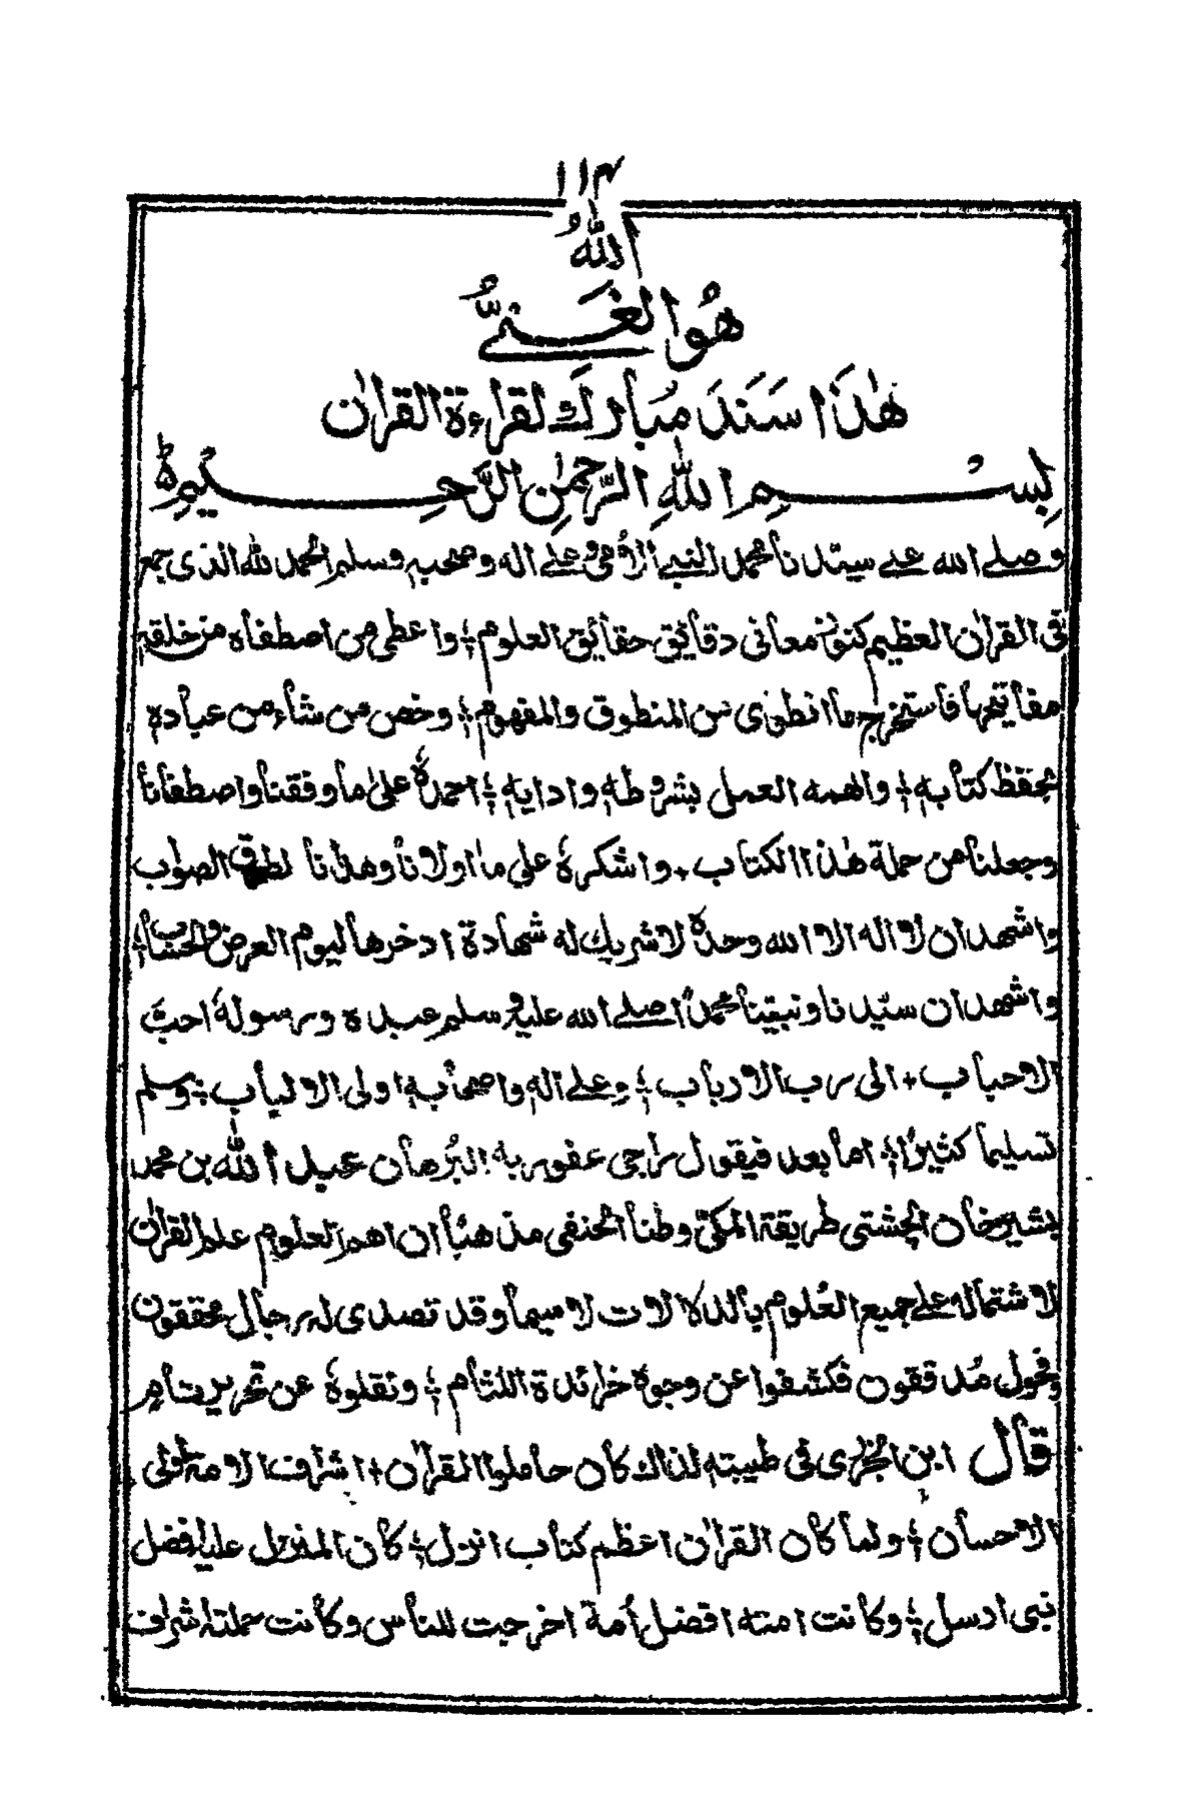 ١١٣
الله
هُوَ الغَنِيُّ
هٰذَا سَنَدَ مُبارك لقراءة القرآن
بِسْمِ اللهِ الرّحمٰنِ الرَّحِيْمِ
وصلے الله علے سيّدنا محمد النبي الأُمّي وعلے اله وصحبه وسلم الحمد لله الذى جمع
فى القرآن العظيم كنوز معانى دقائق حقائق العلوم ؛ واعطى من اصطفاه من خلقه
مفاتيحها فاستخرج ما انطوى من المنطوق والمفهوم ؛ وخص من شاء من عباده
بحفظ كتابه ؛ والهمه العمل بشروطه وادابه ؛ احمدهٗ على ما وفقنا واصطفانا
وجعلنا من حملة هٰذا الكتاب + واشكرهٗ على ما اولانا وهدانا لطرق الصواب
واشهد ان لا اله الا الله وحدهٗ لا شريك له شهادة ادخرها ليوم العرض والحساب ؛
واشهد ان سيّدنا ونبيّنا محمدًا صلے الله عليه وسلم عبده ورسولهٗ احبّ
الاحباب + الى رب الارباب ؛ وعلے اله واصحابه اولى الالباب ؛ وسلم
تسليما كثيرًا ؛ اما بعد فيقول راجى عفو ربه البُرهان عبد الله بن محمد
بشير خان الچشتى طريقة المكىّ وطنا الحنفى مذهبا ان اهم العلوم علم القرآن
لاشتماله علے جميع العُلوم بالدلالات لا سيما وقد تصدى له رجال محققون
وفحول مُدققون فكشفوا عن وجوه خرائدة اللثام ؛ ونقلوهٗ عن تحرير تام
قال ابن الجزرى فى طيبته لذاك كان حاملوا القرآن + اشراف الامة اولى
الاحسان ؛ ولما كان القرآن اعظم كتاب انزل ؛ كان المنزل عليه افضل
نبى ارسل ؛ وكانت امته افضل أمة اخرجت للناس وكانت حملته اشراف